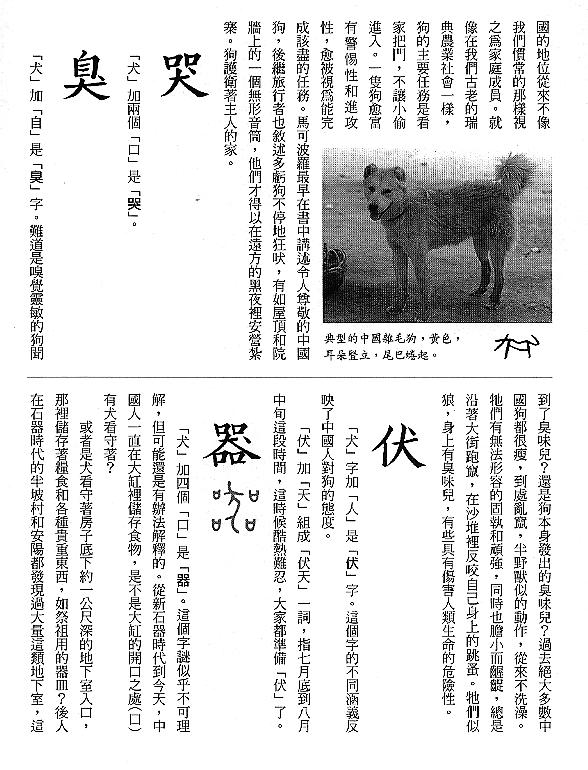 國的地位從來不像
我們慣常的那樣視
之為家庭成員。就
像在我們古老的瑞
典農業社會一樣，
狗的主要任務是看
家把門，不讓小偷
進入。一隻狗愈富
有警惕性和進攻
性，愈被視為能完
成該盡的任務。馬可波羅最早在書中講述令人尊敬的中國
狗，後繼旅行者也敘述多虧狗不停地狂吠，有如屋頂和院
牆上的一個無形音筒，他們才得以在遠方的黑夜裡安營紮
寨。狗護衛著主人的家。
哭
「犬」加兩個「口」是「哭」。
臭
「犬」加「自」是「臭」字。難道是嗅覺靈敏的狗聞
典型的中國雜毛狗，黃色，
耳朵豎立，尾巴捲起。
到了臭味兒？還是狗本身發出的臭味兒？過去絕大多數中
國狗都很瘦，到處亂竄，半野獸似的動作，從來不洗澡。
牠們有無法形容的固執和頑強，同時也膽小而齷齪，總是
沿著大街跑竄，在沙堆裡反咬自己身上的跳蚤。牠們似
狼，身上有臭味兒，有些具有傷害人類生命的危險性。
伏
「犬」字加「人」是「伏」字。這個字的不同涵義反
映了中國人對狗的態度。
「伏」加「天」組成「伏天」一詞，指七月底到八月
中旬這段時間，這時候酷熱難忍，大家都準備「伏」了。
器
「犬」加四個「口」是「器」。這個字謎似乎不可理
解，但可能還是有辦法解釋的。從新石器時代到今天，中
國人一直在大缸裡儲存食物，是不是大缸的開口之處（口）
有犬看守著？
或者是犬看守著房子底下約一公尺深的地下室入口，
那裡儲存著糧食和各種貴重東西，如祭祖用的器皿？後人
在石器時代的半坡村和安陽都發現過大量這類地下室，這